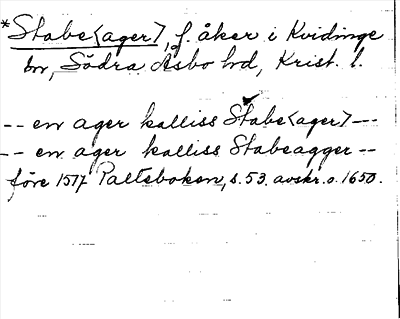 *Stabe<ager>, f. åker i Kvidinge
bn, Södra Åsbo hd, Krist. l.
-- en ager kalliss Stabe<ager> ---
-- en ager kalliss Stabeagger --
före 1517 Paltebokon, s. 53. avskr. o. 1650.